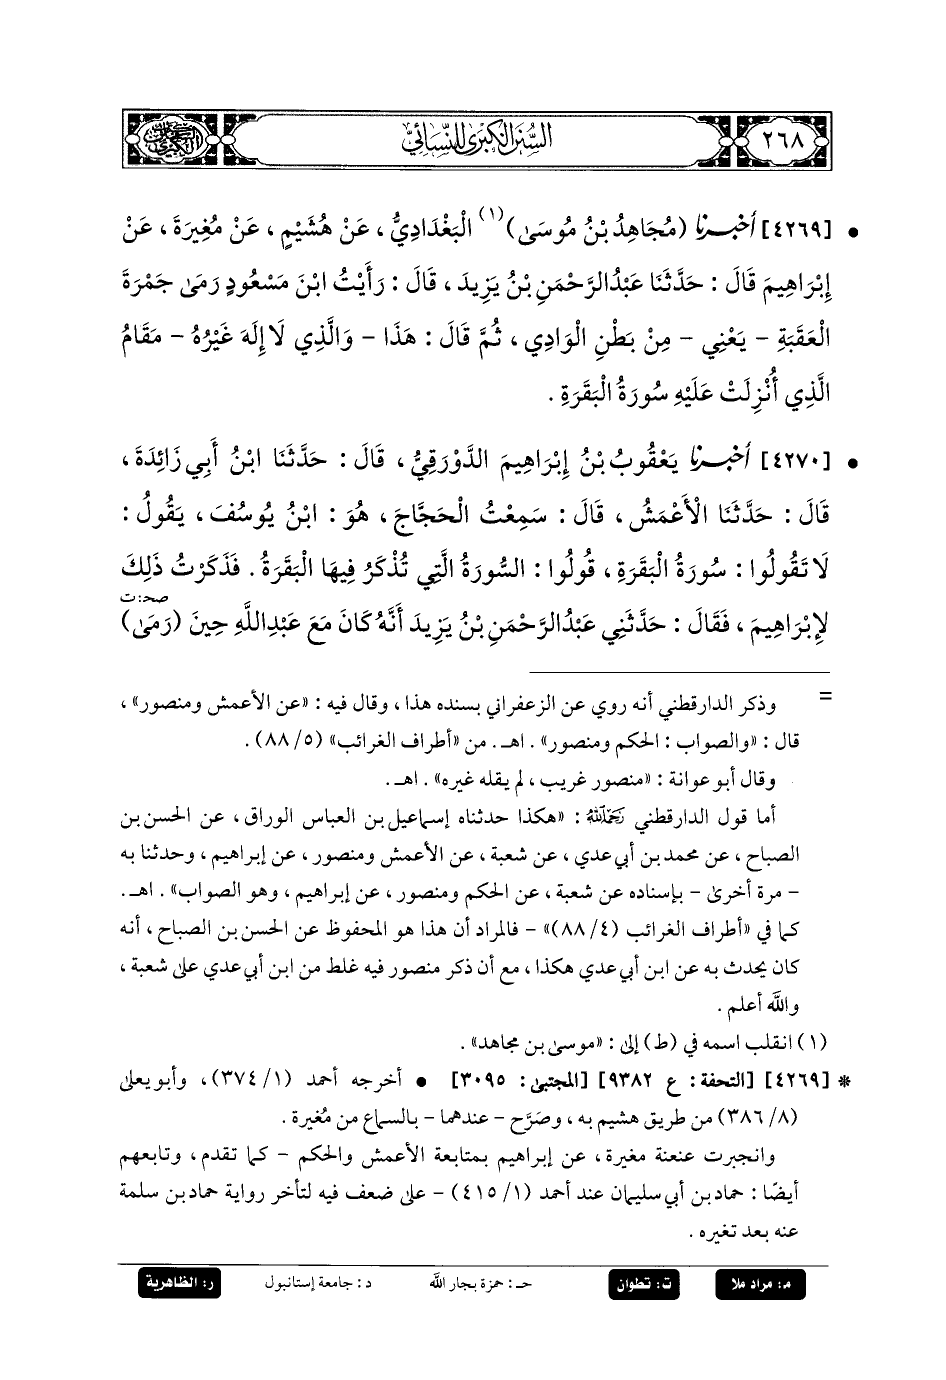 ٢٦٨
السُّنَنُ الكِبْرَى للنَّسَائِيِّ
• [٤٢٦٩] أَخْبَرَنَا (مُجَاهِدُ بْنُ مُوسَى)(١) الْبَغْدَادِيُّ ، عَنْ هُشَيْمٍ ، عَنْ مُغِيرَةَ ، عَنْ
إِبْرَاهِيمَ قَالَ : حَدَّثَنَا عَبْدُالرَّحْمَنِ بْنُ يَزِيدَ ، قَالَ : رَأَيْتُ ابْنَ مَسْعُودٍ رَمَىٰ جَمْرَةَ
الْعَقَبَةِ - يَعْنِي - مِنْ بَطْنِ الْوَادِي ، ثُمَّ قَالَ : هَذَا - وَالَّذِي لَا إِلَهَ غَيْرُهُ - مَقَامُ
الَّذِي أُنْزِلَتْ عَلَيْهِ سُورَةُ الْبَقَرَةِ .
• [٤٢٧٠] أَخْبَرَنَا يَعْقُوبُ بْنُ إِبْرَاهِيمَ الدَّوْرَقِيُّ ، قَالَ : حَدَّثَنَا ابْنُ أَبِي زَائِدَةَ ،
قَالَ : حَدَّثَنَا الْأَعْمَشُ ، قَالَ : سَمِعْتُ الْحَجَّاجَ ، هُوَ : ابْنُ يُوسُفَ ، يَقُولُ :
لَا تَقُولُوا : سُورَةُ الْبَقَرَةِ ، قُولُوا : السُّورَةُ الَّتِي تُذْكَرُ فِيهَا الْبَقَرَةُ . فَذَكَرْتُ ذَلِكَ
صحـ:ت
لِإِبْرَاهِيمَ ، فَقَالَ : حَدَّثَنِي عَبْدُالرَّحْمَنِ بْنُ يَزِيدَ أَنَّهُ كَانَ مَعَ عَبْدِاللَّهِ حِينَ (رَمَىٰ)
= وذكر الدارقطني أنه روي عن الزعفراني بسنده هذا ، وقال فيه : «عن الأعمش ومنصور» ،
قال : «والصواب : الحكم ومنصور» . اهـ. من «أطراف الغرائب» (٥/ ٨٨) .
وقال أبو عوانة : «منصور غريب ، لم يقله غيره» . اهـ .
أما قول الدارقطني رَحِمَهُ اللَّهُ : «هكذا حدثناه إسماعيل بن العباس الوراق ، عن الحسن بن
الصباح ، عن محمد بن أبي عدي ، عن شعبة ، عن الأعمش ومنصور ، عن إبراهيم ، وحدثنا به
- مرة أخرى - بإسناده عن شعبة ، عن الحكم ومنصور ، عن إبراهيم ، وهو الصواب» . اهـ.
كما في «أطراف الغرائب (٤/ ٨٨)» - فالمراد أن هذا هو المحفوظ عن الحسن بن الصباح ، أنه
كان يحدث به عن ابن أبي عدي هكذا ، مع أن ذكر منصور فيه غلط من ابن أبي عدي على شعبة ،
والله أعلم .
(١) انقلب اسمه في (ط) إلى : «موسى بن مجاهد» .
* [٤٢٦٩] [التحفة : ع ٩٣٨٢] [المجتبى : ٣٠٩٥] • أخرجه أحمد (١/ ٣٧٤) ، وأبو يعلى
(٨/ ٣٨٦) من طريق هشيم به ، وصَرَّح - عندهما - بالسماع من مُغيرة .
وانجبرت عنعنة مغيرة ، عن إبراهيم بمتابعة الأعمش والحكم - كما تقدم ، وتابعهم
أيضًا : حماد بن أبي سليمان عند أحمد (١/ ٤١٥) - على ضعف فيه لتأخر رواية حماد بن سلمة
عنه بعد تغيره .
م: مراد ملا ت: تطوان حـ: حمزة بجار الله د: جامعة إستانبول ر: الظاهرية